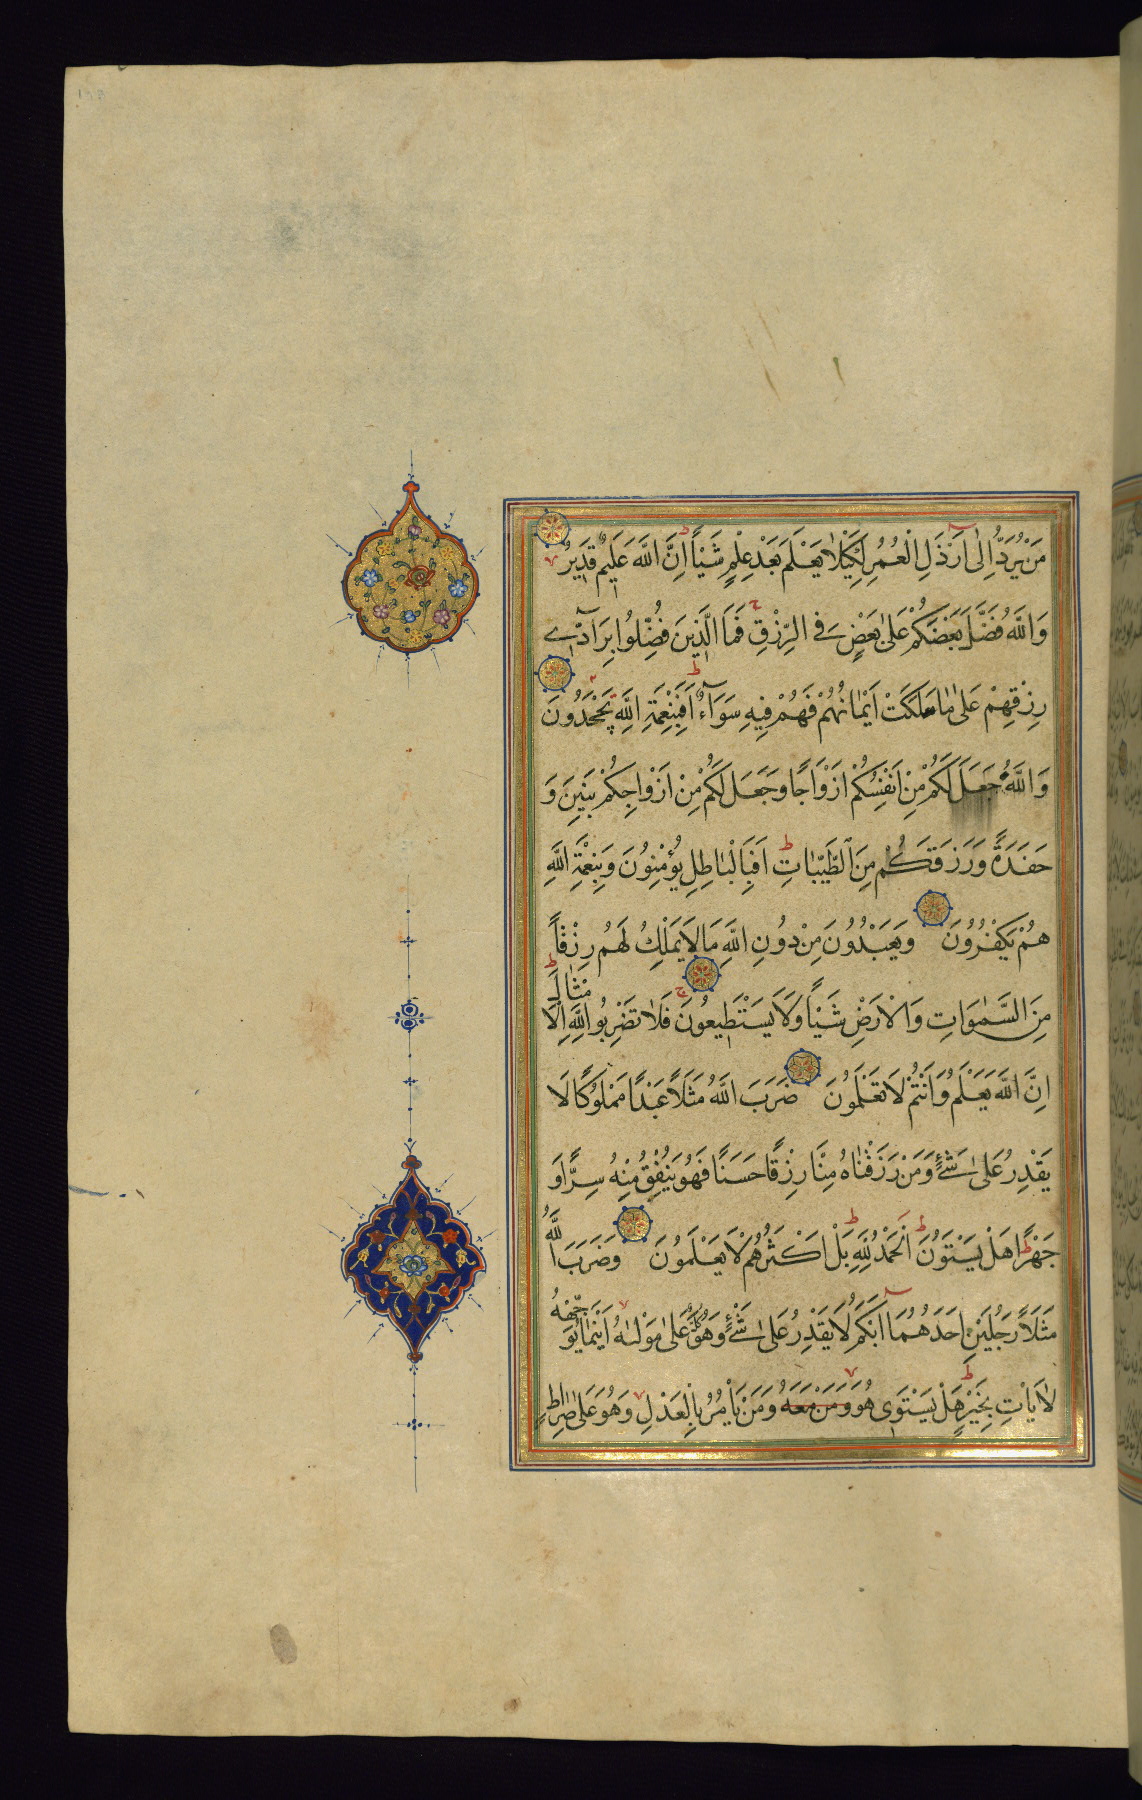 مَنْ يُرَدُّ اِلٰى اَرْذَلِ الْعُمُرِ لِكَيْلَا يَعْلَمَ بَعْدَ عِلْمٍ شَيْـًٔا ط اِنَّ اللّٰهَ عَلِيمٌ قَدِيرٌ
وَاللّٰهُ فَضَّلَ بَعْضَكُمْ عَلٰى بَعْضٍ فِي الرِّزْقِ ج فَمَا الَّذِينَ فُضِّلُوا بِرَآدِّي
رِزْقِهِمْ عَلٰى مَا مَلَكَتْ اَيْمَانُهُمْ فَهُمْ فِيهِ سَوَآءٌ ط اَفَبِنِعْمَةِ اللّٰهِ يَجْحَدُونَ
وَاللّٰهُ جَعَلَ لَكُمْ مِنْ اَنْفُسِكُمْ اَزْوَاجًا وَجَعَلَ لَكُمْ مِنْ اَزْوَاجِكُمْ بَنِينَ وَ
حَفَدَةً وَرَزَقَكُمْ مِنَ الطَّيِّبَاتِ ط اَفَبِالْبَاطِلِ يُؤْمِنُونَ وَبِنِعْمَةِ اللّٰهِ
هُمْ يَكْفُرُونَ وَيَعْبُدُونَ مِنْ دُونِ اللّٰهِ مَا لَا يَمْلِكُ لَهُمْ رِزْقًا
مِنَ السَّمٰوَاتِ وَالْاَرْضِ شَيْـًٔا وَلَا يَسْتَطِيعُونَ ج فَلَا تَضْرِبُوا لِلّٰهِ الْاَمْثَالَ ط
اِنَّ اللّٰهَ يَعْلَمُ وَاَنْتُمْ لَا تَعْلَمُونَ ضَرَبَ اللّٰهُ مَثَلًا عَبْدًا مَمْلُوكًا لَا
يَقْدِرُ عَلٰى شَيْءٍ وَمَنْ رَزَقْنَاهُ مِنَّا رِزْقًا حَسَنًا فَهُوَ يُنْفِقُ مِنْهُ سِرًّا وَ
جَهْرًا ط هَلْ يَسْتَوُونَ ط اَلْحَمْدُ لِلّٰهِ ط بَلْ اَكْثَرُهُمْ لَا يَعْلَمُونَ وَضَرَبَ اللّٰهُ
مَثَلًا رَجُلَيْنِ اَحَدُهُمَا اَبْكَمُ لَا يَقْدِرُ عَلٰى شَيْءٍ وَهُوَ كَلٌّ عَلٰى مَوْلٰىهُ اَيْنَمَا يُوَجِّهْهُ
لَا يَأْتِ بِخَيْرٍ ط هَلْ يَسْتَوِي هُوَ وَمَنْ مَعَهُ وَمَنْ يَأْمُرُ بِالْعَدْلِ وَهُوَ عَلٰى صِرَاطٍ